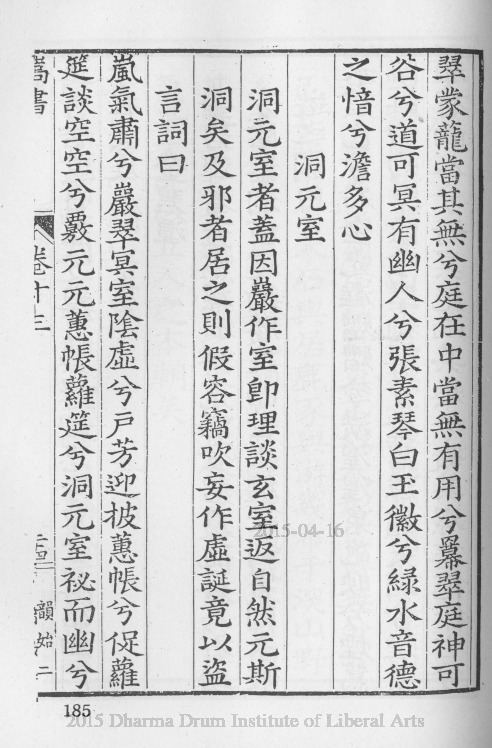 翠蒙龍當其無兮庭在中當無有用兮冪翠庭神可
谷兮道可冥有幽人兮張素琴白玉徽兮綠水音德
之愔兮澹多心
洞元室
洞元室者蓋因巖作室卽理談玄室返自然元斯
洞矣及邪者居之則假容竊吹妄作虛誕竟以盜
言詞曰
嵐氣肅兮巖翠冥室陰虛兮戶芳迎披蕙帳兮促蘿
筵談空空兮覈元元蕙帳蘿筵兮洞元室祕而幽兮
嵩書
卷十三
韻始二
185
2015-04-16
2015 Dharma Drum Institute of Liberal Arts